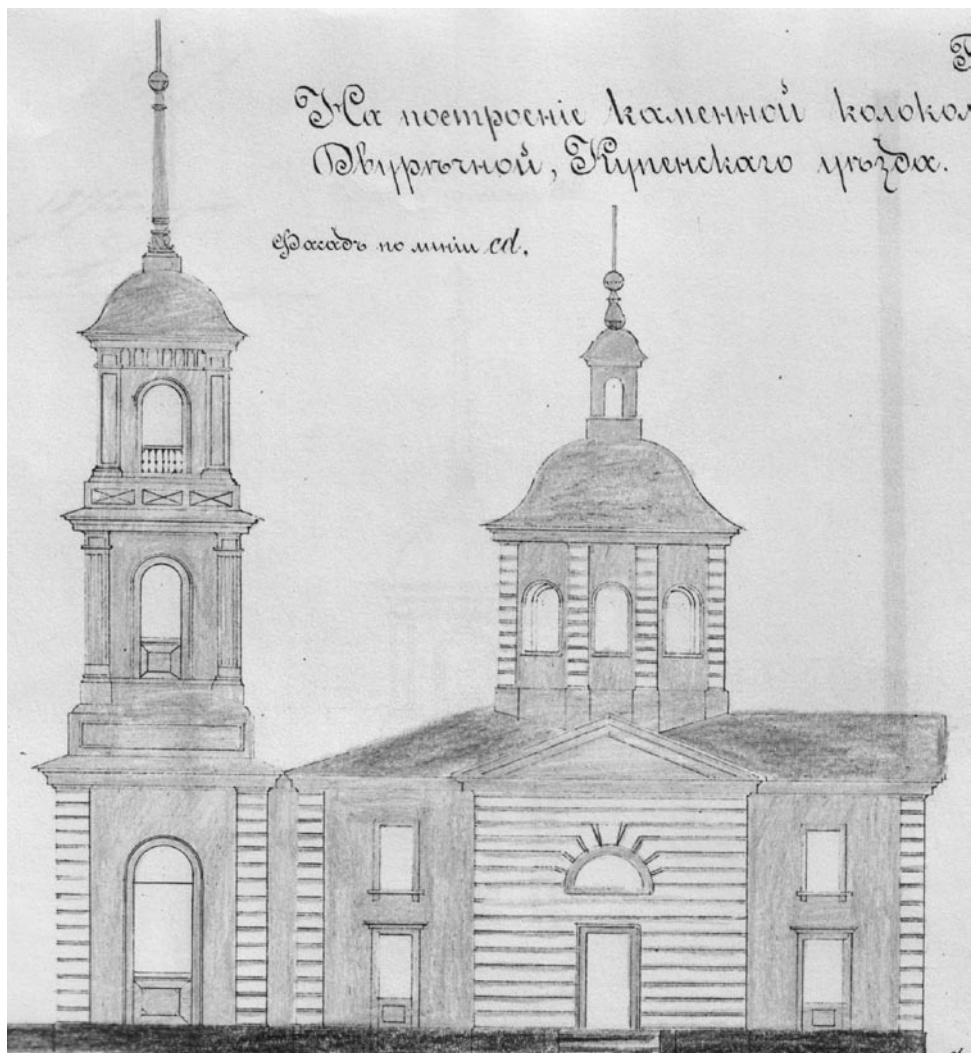 На построеніе каменной колокол
Двурѣчной, Купенскаго уѣзда.
Фасадъ по линіи cd.